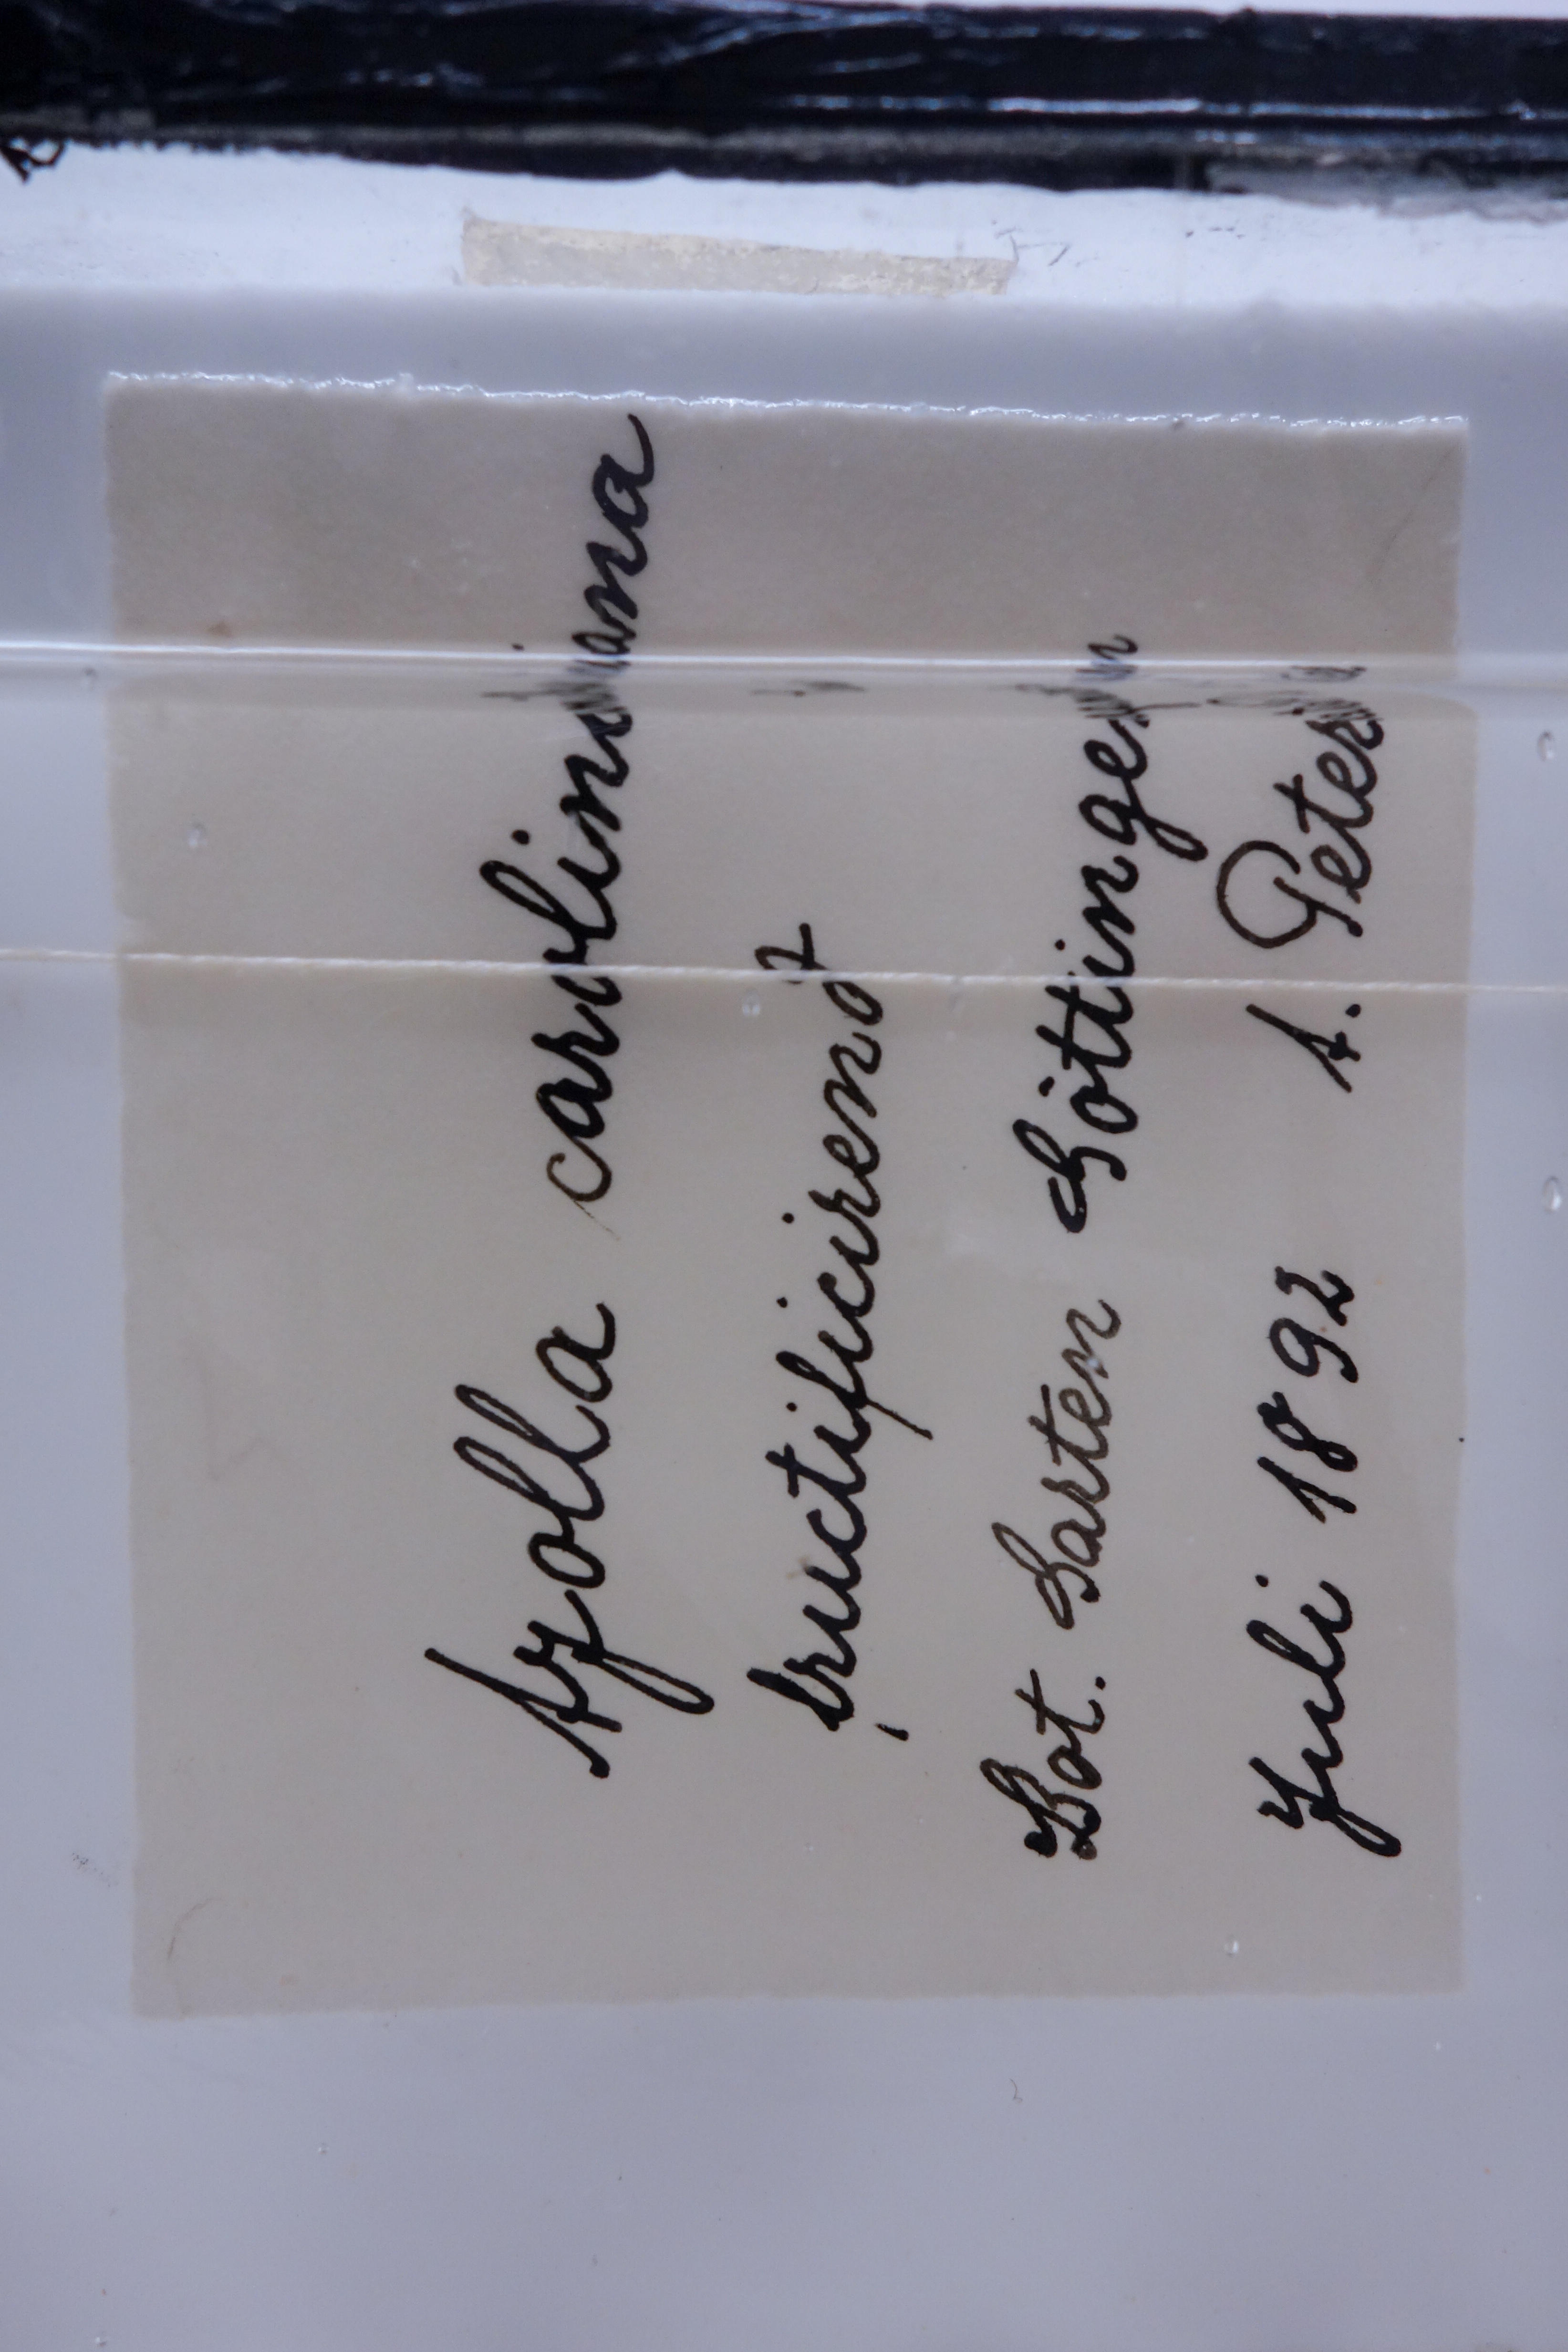 Azolla caroliniana
fructificirend
Bot. Garten Göttingen
Juli 1892 A. Peter